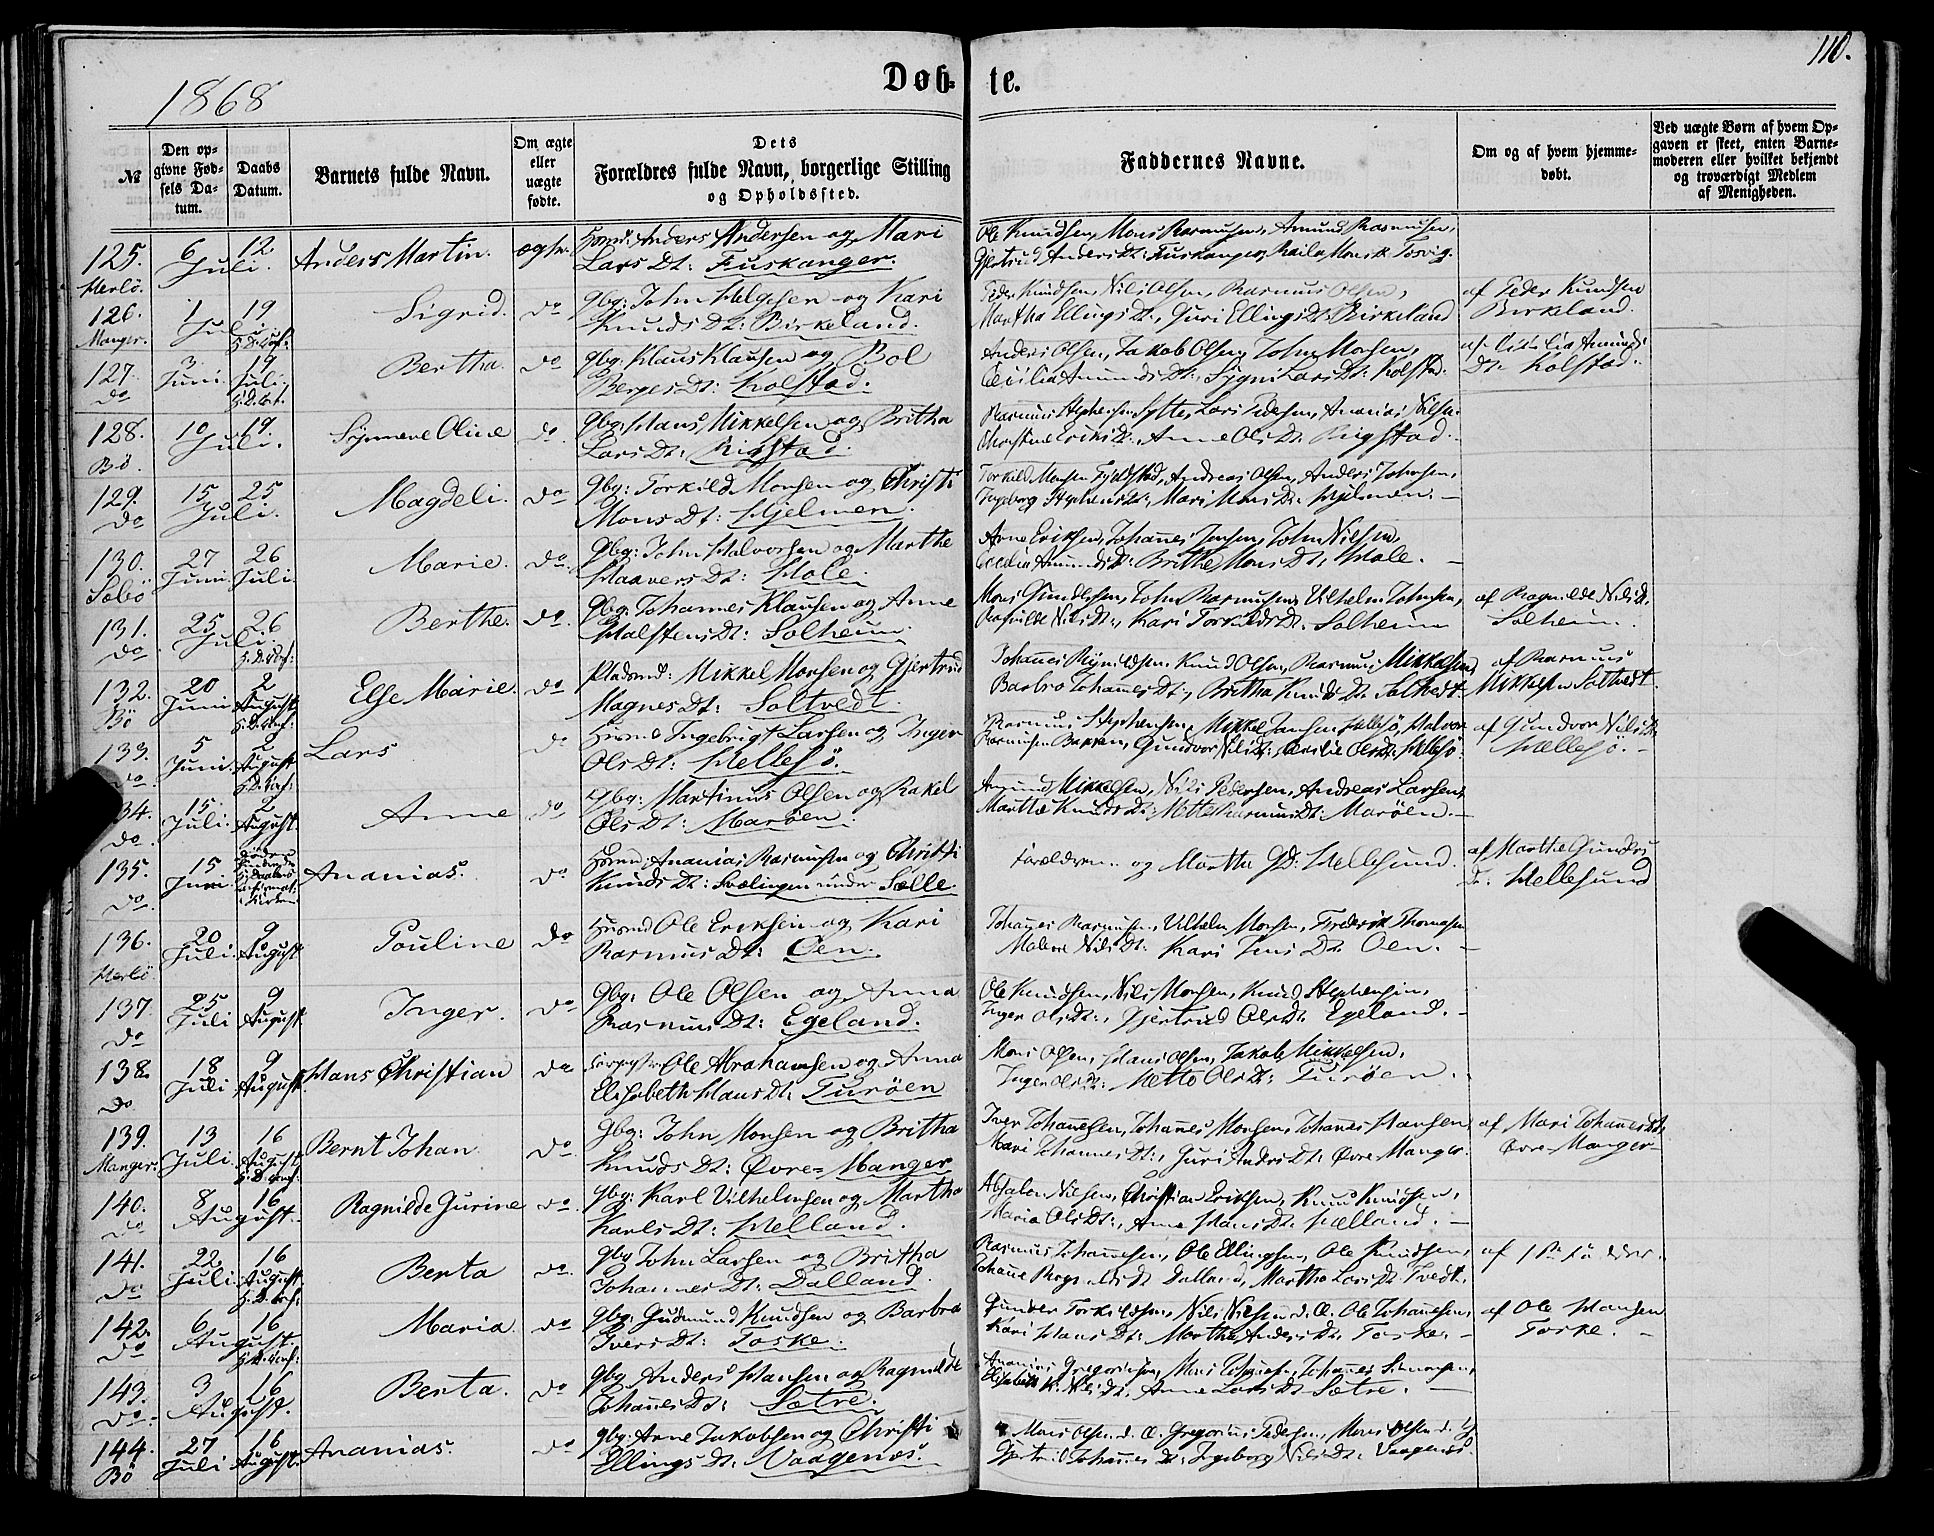 110.
1868
Døb= te.
№
Den op-
givne Fød-
sels Da-
tum.
Daabs
Datum.
Barnets fulde Navn.
Om ægte
eller
uægte
fødte.
Dets
Forældres fulde Navn, borgerlige Stilling
og Opholdssted.
Faddernes Navne.
Om og af hvem hjemme-
døbt.
Ved uægte Børn af hvem Op-
gaven er skeet, enten Barne-
moderen eller hvilket bekjendt
og troværdigt Medlem
af Menigheden.
125. 6 12 Anders Martin. Anders Andersen og Mari
Herlö. Juli. Lars Dt: Fuskanger.
Ole Knudsen, Mons Rasmussen, Amund Rasmussen,
Gjertrud Anders Dt: Fuskanger,
126. 1 19 Sigrid. do gbg: John Helgesen og Kari
Manger. Juli Knuds Dt: Birkeland.
Peder Knudsen, Nils Olsen, Rasmus Olsen,
Martha Ellings Dt:, Guri Ellings Dt: Birkeland
af Peder Knudsen
Birkeland.
127. 3 19 Bertha. do gbg. Klaus Klausen og Bol
do Juni. Juli Berges Dt: Kolstad.
Anders Olsen, Jakob Olsen, John Monsen,
Cecilia Amunds Dt:, Sygni Lars Dt: Kolstad.
Dt. Kolstad.
128. 10 19 Synneve Oline do gbg: Hans Mikkelsen og Britha
Bö. Juli. Lars Dt: Rigstad.
Rasmus Stephensen Sylte, Lars Pedersen, Ananias Nilsen
Anne Ols Dt: Rigstad.
129. 15 25 Magdeli. do gbg: Torkild Monsen og Christi
do Juli. Mons Dt: Hjelmen.
Torkild Monsen Fjeldstad, Andreas Olsen, Anders Johnsen,
Ingeborg Stephens Dt:, Mari Mons Dt: Hjelmen.
130. 27 26 Marie. do. gbg: John Halvorsen og Marthe
Sæbö Juni. Juli. Haavers Dt: Hole.
Arne Eriksen, Johannes Jensen, John Nilsen,
Cecilia Amunds Dt: Brithe Mons Dt: Hole.
131. 25 26 Berthe. do. gbg: Johannes Klausen og Anne
do Juli. Halstens Dt: Solheim.
Mons Gundersen, John Rasmussen, Vilhelm Johnsen,
Ragnilde Nils Dt:, Kari Torkilds Dt. Solheim
af Ragnilde Nils Dt.
Solheim.
132. 20 2 Else Marie. do Pladsmd: Mikkel Monsen og Gjertrud
Bö Juni August Magnes Dt: Soltvedt.
Knud Olsen, Rasmus Mikkelsen,
Barbro Johannes Dt:, Britha Knuds Dt. Soltvedt.
af Rasmus
Mikkelsen Soltvedt.
133. 5 2 Lars do Huusmd Ingebrigt Larsen og Inger
do. Juni. August Ols Dt: Hellesö.
Rasmus Stephensen, Mikkel Jansen Hellesö, Halvor
Rasmussen Bakken, Gundvor Nils Dt:, Cecilie Ols Dt: Hellesö.
af Gundvor Nils Dt.
Hællesö.
134. 15. 2 Anne do gbg: Martinus Olsen og Rakel
do. Juli. August. Ols Dt: Marøen.
Amund Mikkelsen, Nils Pedersen, Andreas Larsen,
Marthe Knuds Dt: Mette Rasmus Dt: Marøen.
135. 15 Ananias. do Huusmd: Ananias Rasmussen og Christi
do. Juni Knuds Dt: Svælingen under Sælle
Forældrene og Martha G.D: Hellesund.
af Marthe Gunders
Dt. Hellesund
136. 20 9 Pouline do Huusmd Ole Eriksen og Kari
Herlö Juli. August Rasmus Dt: Oen.
Johannes Rasmussen, Vilhelm Monsen, Frederik Thomassen
Malene Nils Dt: Kari Jens Dt. Oen.
137. 25 9 Inger. do gbg: Ole Olsen og Anna
do Juli August Rasmus Dt: Egeland.
Ole Knudsen, Nils Monsen, Knud Stephensen,
Inger Ols Dt:, Gjertrud Ols Dt. Egeland.
138. 18 9 Hans Christian do Ole Abrahamsen og Anna
do Juli August. Elisabeth Hans Dt: Turöen
Mons Olsen, Hans Olsen, Jakob Mikkelsen,
Inger Ols Dt: Mette Ols Dt: Turöen.
139. 13 16 Bernt Johan do. gbg: John Monsen og Britha
Manger: Juli. August Knuds Dt: Øvre-Manger
Iver Johannesen, Johannes Monsen, Johannes Hansen,
Mari Johannes Dt:, Guri Anders Dt: Øvre Manger.
af Mari Johannes Dt,
Øvre-Manger
140. 8 16 Ragnilde Gurine do. gbg: Karl Vilhelmsen og Martha
do August. Karls Dt: Helland.
Absalon Nilsen, Christian Eriksen, Knud Knudsen,
Maria Ols Dt:, Anne Hans Dt. Hælland.
141. 22 16 Berta do. gbg John Larsen og Britha
do Juli. August Johannes Dt: Dalland.
Rasmus Johannesen, Ole Ellingsen, Ole Knudsen,
Dalland, Martha Lars Dt. Tvedt.
af
142. 6 16 Maria. do gbg: Gudmund Knudsen og Barbra
do August. Ivers Dt: Toske.
Gunder Torkildsen, Nils Nilsen d. Æ. Ole Johannesen,
Kari Hans Dt: Marthe Anders Dt. Toske.
af Ole Hansen
Toske.
143. 3 16 Berta. do gbg Anders Hansen og Ragnilde
do. August. Johannes Dt: Sætre.
Ananias Gregoriusen, Johannes Simonsen,
Anne Lars Dt. Sætre.
144. 27 16 Ananias. do gbg: Arne Jakobsen og Christi
Bö Juli August. Ellings Dt: Vaagenæs.
Mons Olsen d. Æ. Gregorius Pedersen, Mons Olsen d. Y
Gjertrud Johannes Dt: Ingeborg Nils Dt. Vaagenæs.